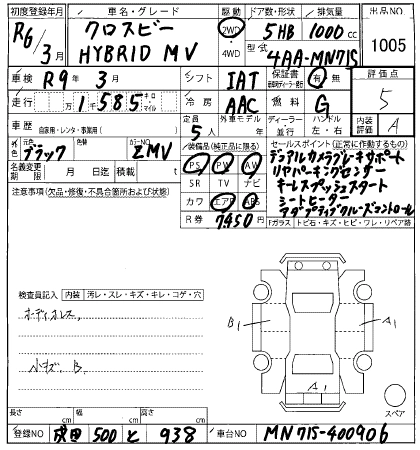 初度登録年月 車名・グレード 駆動 ドア数・形状 排気量 出品NO
R6/3月 クロスビー HYBRID MV 2WD 4WD 5HB 1000 cc 1005
型式 4AA-MN71S
車検 R9年 3月 シフト IAT 保証書 有 無 評価点
走行 万 1千 585 キロ マイル 冷房 AAC 燃料 G 5
車歴 自家用・レンタ・事業用( ) 定員 5人 外車モデル 年 ディーラー 並行 ハンドル 左・右 内装 A
外色 元色 ブラック カラーNO ZMV 装備品(純正品に限る) セールスポイント(正常に作動するもの)
名義変更期限 月 日迄 積載 t PS PW AW デュアルカメラブレーキサポート
注意事項(欠品・修復・不具合箇所および状態) SR TV ナビ リヤパーキングセンサー
カワ エアB ABS キーレスプッシュスタート
R券 7950円 シートヒーター
アダプティブクルーズコントロール
Fガラス トビ石・キズ・ヒビ・ワレ・リペア跡
検査員記入 内装 汚レ・スレ・キズ・キレ・コゲ・穴
オーディオレス
小キズ B
B1 A1
A1
スペア
長さ cm 幅 cm 高さ cm
登録NO 成田 500 と 938 車台NO MN71S-400906